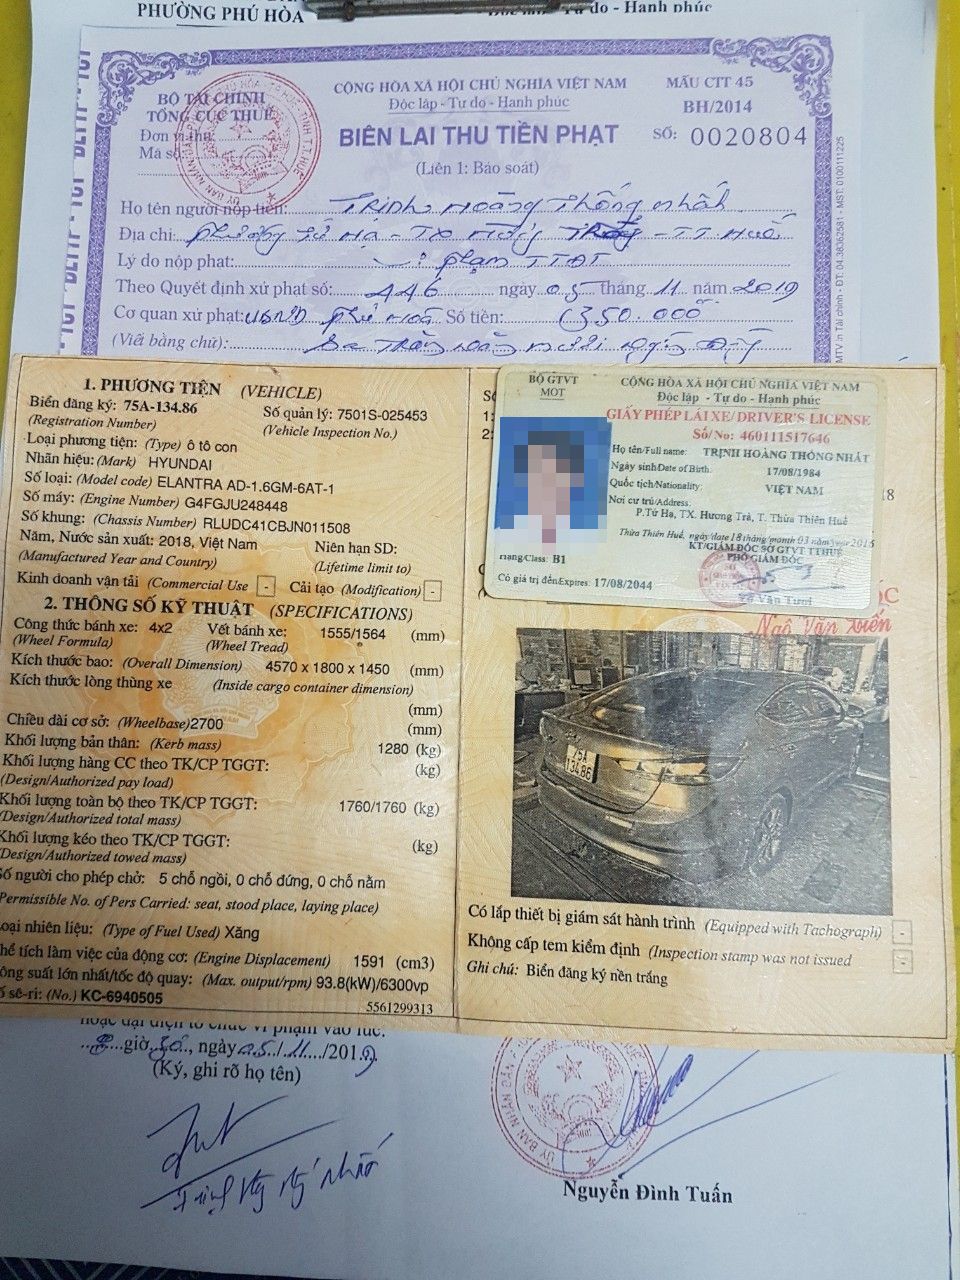 PHƯỜNG PHÚ HÒA
Tự do - Hạnh phúc
BỘ TÀI CHÍNH
TỔNG CỤC THUẾ
Đơn vị thu
Mã số
CỘNG HÒA XÃ HỘI CHỦ NGHĨA VIỆT NAM
Độc lập - Tự do - Hạnh phúc
BIÊN LAI THU TIỀN PHẠT
(Liên 1: Báo soát)
MẪU CTT 45
BH/2014
SỐ: 0020804
Họ tên người nộp tiền: Trịnh Hoàng Thống Nhất
Địa chỉ: Phường Tứ Hạ - TX Hương Trà - TT Huế
Lý do nộp phạt: Vi phạm TTĐT
Theo Quyết định xử phạt số: 446 ngày 05 tháng 11 năm 2019
Cơ quan xử phạt: UBND Phú Hoà Số tiền: 350.000
(Viết bằng chữ): Ba Trăm năm mươi ngàn đồng
1. PHƯƠNG TIỆN (VEHICLE)
Biển đăng ký: 75A-134.86
(Registration Number)
Số quản lý: 7501S-025453
(Vehicle Inspection No.)
Loại phương tiện: (Type) ô tô con
Nhãn hiệu: (Mark) HYUNDAI
Số loại: (Model code) ELANTRA AD-1.6GM-6AT-1
Số máy: (Engine Number) G4FGJU248448
Số khung: (Chassis Number) RLUDC41CBJN011508
Năm, Nước sản xuất: 2018, Việt Nam
(Manufactured Year and Country)
Niên hạn SD:
(Lifetime limit to)
Kinh doanh vận tải (Commercial Use - Cải tạo (Modification) -
2. THÔNG SỐ KỸ THUẬT (SPECIFICATIONS)
Công thức bánh xe: 4x2
(Wheel Formula)
Vết bánh xe: 1555/1564 (mm)
(Wheel Tread)
Kích thước bao: (Overall Dimension) 4570 x 1800 x 1450 (mm)
Kích thước lòng thùng xe (Inside cargo container dimension)
(mm)
Chiều dài cơ sở: (Wheelbase)2700 (mm)
Khối lượng bản thân: (Kerb mass) 1280 (kg)
Khối lượng hàng CC theo TK/CP TGGT: (kg)
(Design/Authorized pay load)
Khối lượng toàn bộ theo TK/CP TGGT: 1760/1760 (kg)
(Design/Authorized total mass)
Khối lượng kéo theo TK/CP TGGT: (kg)
(Design/Authorized towed mass)
Số người cho phép chở: 5 chỗ ngồi, 0 chỗ đứng, 0 chỗ nằm
Permissible No. of Pers Carried: seat, stood place, laying place)
Loại nhiên liệu: (Type of Fuel Used) Xăng
Thể tích làm việc của động cơ: (Engine Displacement) 1591 (cm3)
Công suất lớn nhất/tốc độ quay: (Max. output/rpm) 93.8(kW)/6300vp
Số sê-ri: (No.) KC-6940505
5561299313
BỘ GTVT
MOT
CỘNG HÒA XÃ HỘI CHỦ NGHĨA VIỆT NAM
Độc lập - Tự do - Hạnh phúc
GIẤY PHÉP LÁI XE/DRIVER'S LICENSE
Số/No: 460111517646
Họ tên/Full name: TRỊNH HOÀNG THỐNG NHẤT
Ngày sinh/Date of Birth: 17/08/1984
Quốc tịch/Nationality: VIỆT NAM
Nơi cư trú/Address:
P.Tứ Hạ, TX. Hương Trà, T. Thừa Thiên Huế
Thừa Thiên Huế, ngày/date 18 tháng/month 03 năm/year 2015
KT/GIÁM ĐỐC SỞ GTVT TTHUẾ
PHÓ GIÁM ĐỐC
Hạng/Class: B1
Có giá trị đến/Expires: 17/08/2044
Ngô Văn Kiến
75A
134.86
Có lắp thiết bị giám sát hành trình (Equipped with Tachograph) -
Không cấp tem kiểm định (Inspection stamp was not issued -
Ghi chú: Biển đăng ký nền trắng
hoặc đại diện tổ chức vi phạm vào lúc
giờ 30, ngày 05/11/2019
(Ký, ghi rõ họ tên)
Nguyễn Đình Tuấn